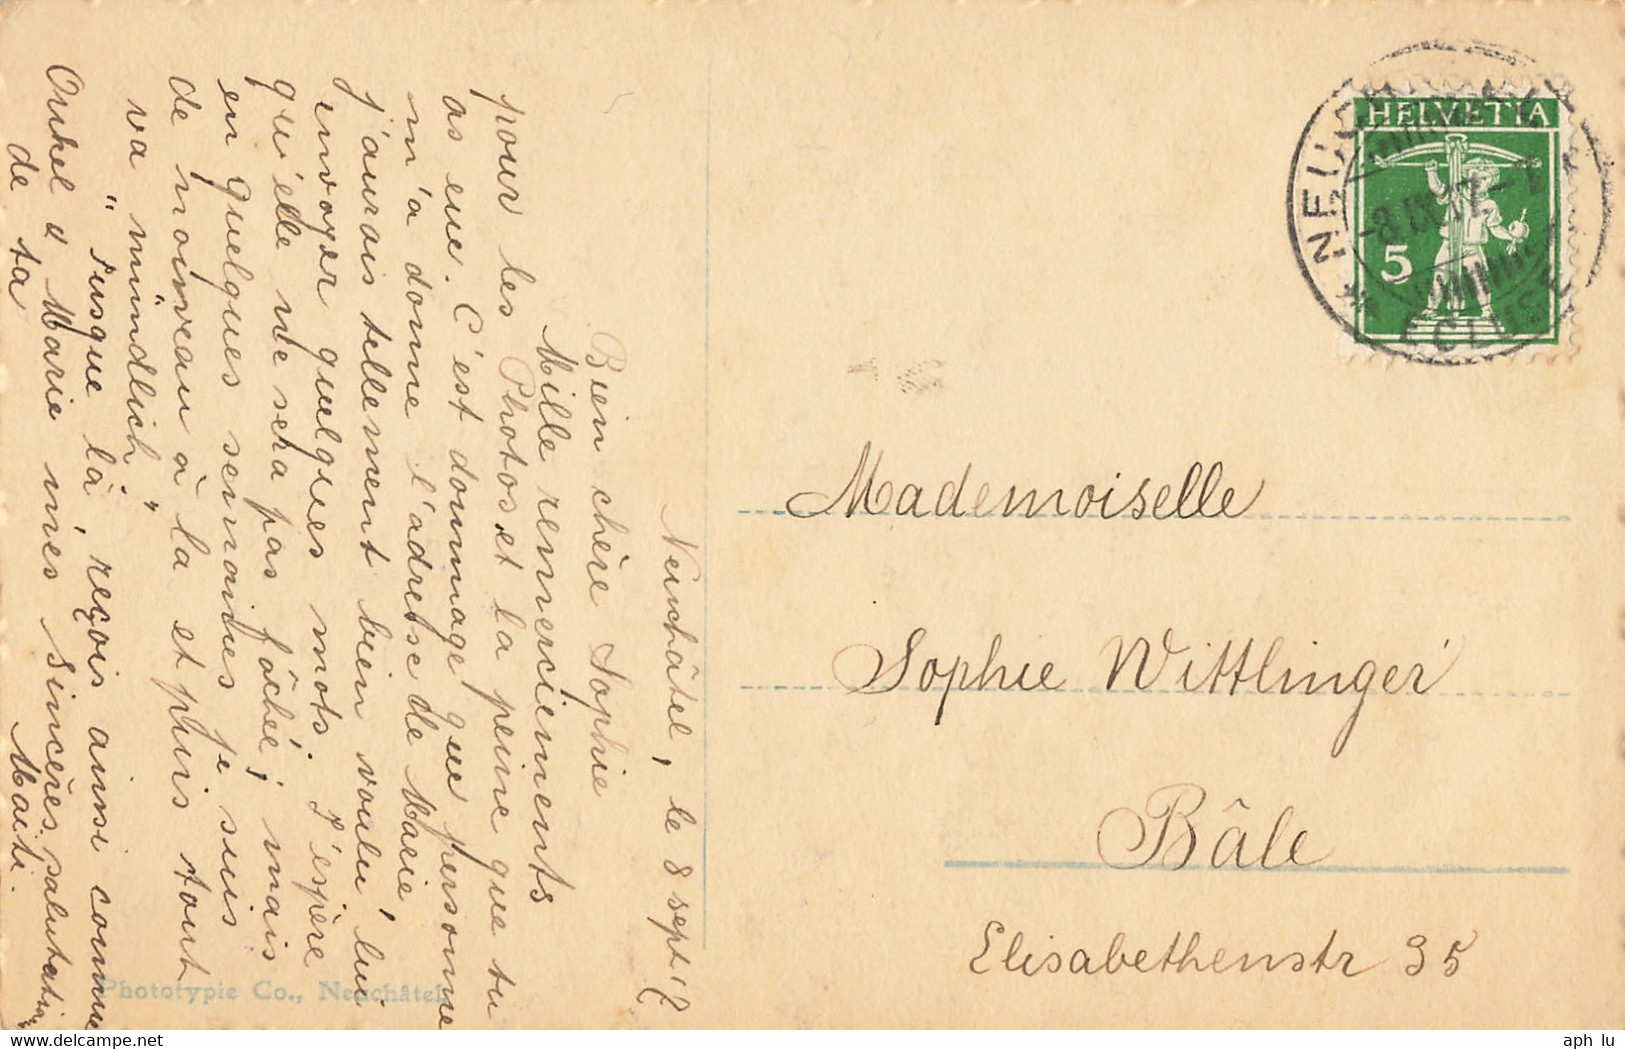 Neuchâtel, le 8 sept. 17
Bien chère Sophie
Mille remerciements
pour les Photos et la peine que tu
as eue. C'est dommage que personne
m'a donné l'adresse de Marie,
j'aurais tellement bien voulu lui
envoyer quelques mots. J'espère
qu'elle ne sera pas fâchée; mais
en quelques semaines je suis
de nouveau à la et puis tout
va "mündlich"
Jusque là, reçois ainsi comme
Onkel & Marie mes sincères salutations
de ta
HELVETIA
5
NEUCH
-8.IX.17.-7
ECLUSE
Mademoiselle
Sophie Wittlinger
Bâle
Elisabethenstr 35
Phototypie Co., Neuchâtel
aph lu